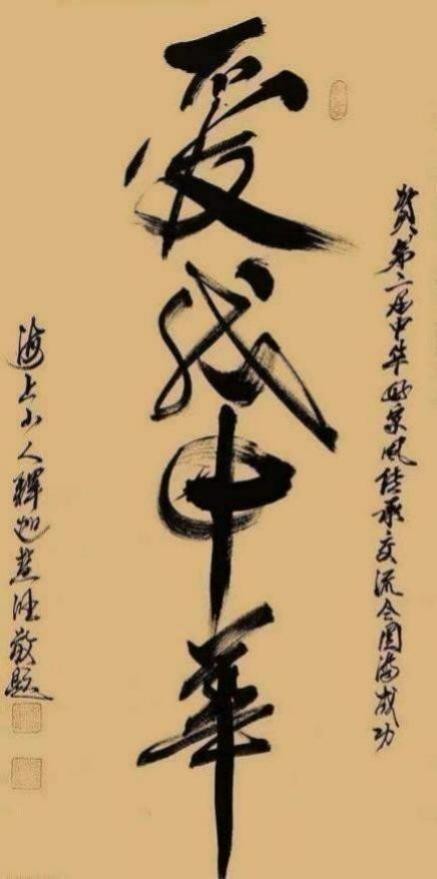 贺第二届中华好家风传承交流会圆满成功
爱我中華
海上小人釋慧敬題